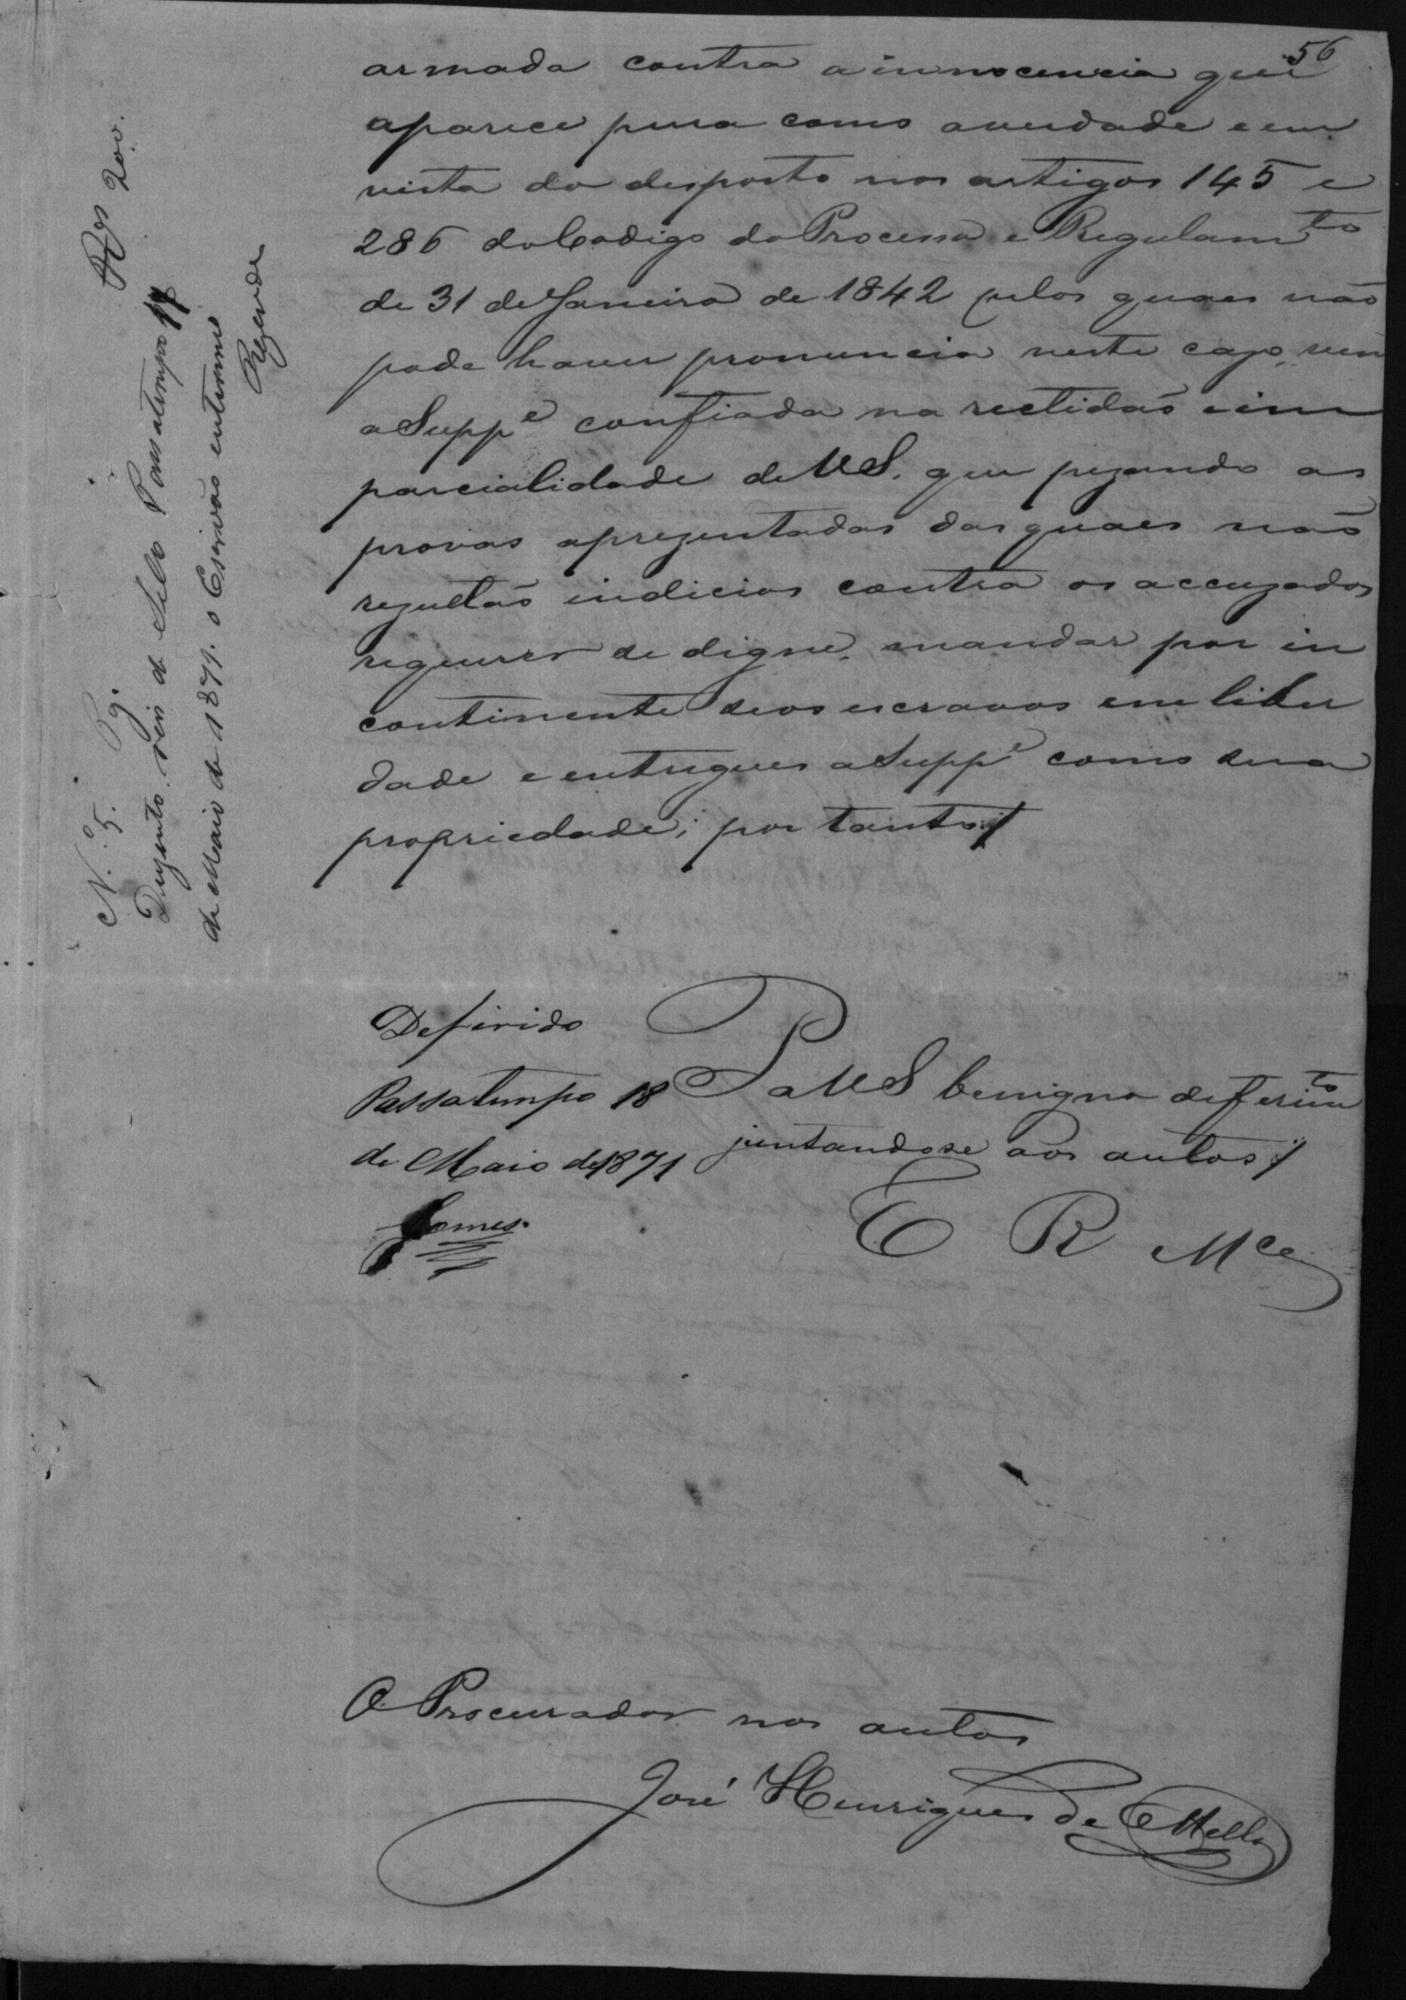 56
armada contra a innocencia que
aparece pura como averdade e em
vista do desposto nos artigos 145 e
286 do Codigo do Processo e Regulam.to
de 31 de Janeiro de 1842 pelos quaes não
pode haver pronuncia neste cazo, vem
a Supp.e confiada na rectidão e im
parcialidade de V.S. que pezando as
provas aprezentadas das quaes não
rezultão indicios contra os accuzados
requerer se digne, mandar por in
continente seos escravos em liber
dade e entregues a Supp.e como sua
propriedade; por tanto//
N.º 5. Pg. Rs 200.
Duzento reis de Sello Passatempo 17
de Maio de 1871. o Escrivão enterino
Rezende
Deferido
Passatempo 18
de Maio de 1871
Gomes.
P a V S benigno deferim.to
juntandose aos autos//
E R M.ce
O Procurador nos autos
José Henriques de Mello